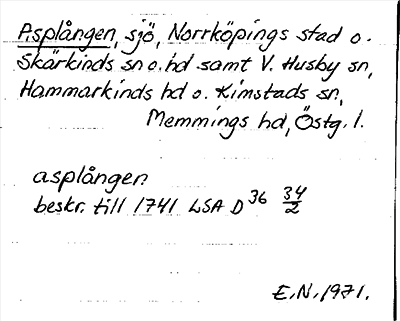 Asplången, sjö, Norrköpings stad o.
Skärkinds sn o. hd samt V. Husby sn,
Hammarkinds hd o. Kimstads sn,
Memmings hd, Östg. l.
asplången
beskr. till 1741 LSA D 36 34/2
E.N. 1971.